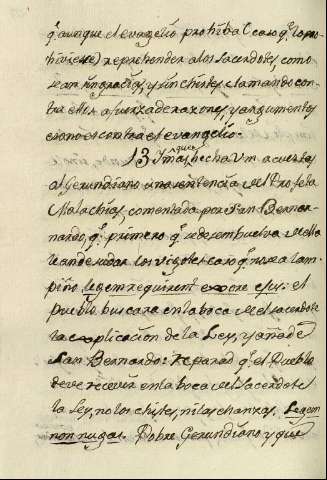 q.e aunque el evangelio prohiba (caso q.e lo pro-
hiviese) reprehender a los sacerdotes, como
sean sin gracias, y sin chistes clamando con-
tra ellos a fuerza de razones, y argumentos
eso no es contra el evangelio.
13 Y mas hecha Um. a cuestas
al Gerundiano una sentencia del Profeta
Malachias, comentada por San Bernar-
nardo, q.e primero q.e se desembuelva de ella
le an de sudar los vigotes caso q.e no sea lam-
piño. Legem requirent ex ore ejus: el
Pueblo buscare en la boca del sacerdote
la explicacion de la Ley, y añade
San Bernardo: reparad q.e el Pueblo
deve recivir en la boca del sacerdote
la Ley, no los chistes, ni las chanzas, Legem
non nugas. Pobre Gerundiano y que